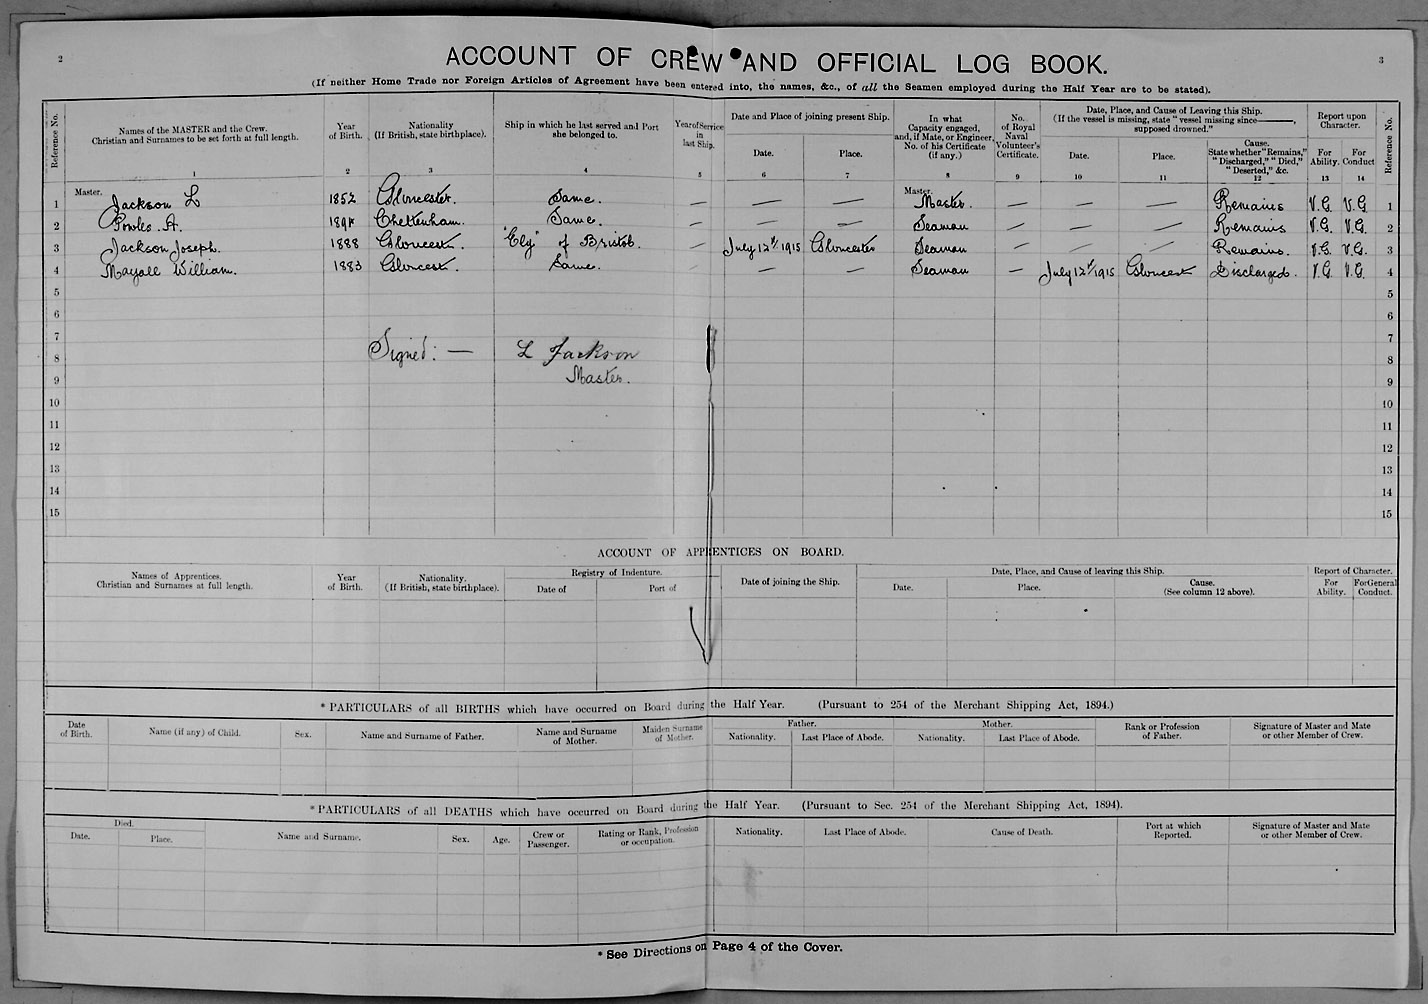 2
3
ACCOUNT OF CREW AND OFFICIAL LOG BOOK.
(If neither Home Trade nor Foreign Articles of Agreement have been entered into, the names, &c., of all the Seamen employed during the Half Year are to be stated).
Reference No.
Names of the MASTER and the Crew.
Christian and Surnames to be set forth at full length.
1
Year of Birth.
2
Nationality
(If British, state birthplace).
3
Ship in which he last served and Port she belonged to.
4
Year of Service in last Ship.
5
Date and Place of joining present Ship.
Date.
6
Place.
7
In what Capacity engaged, and, if Mate, or Engineer, No. of his Certificate (if any.)
8
No. of Royal Naval Volunteer's Certificate.
9
Date, Place, and Cause of Leaving this Ship.
(If the vessel is missing, state "vessel missing since———, supposed drowned."
Date.
10
Place.
11
Cause.
State whether "Remains," "Discharged," "Died," "Deserted," &c.
12
Report upon Character.
For Ability.
13
For Conduct
14
Reference No.
1 Master. Jackson L 1852 Gloucester. Same. — — — Master. Master. — — — Remains V.G. V.G. 1
2 Powles A. Cheltenham. Same. — — — Seaman — — — Remains V.G. V.G. 2
3 Jackson Joseph. 1888 Gloucester. "Ely" of Bristol. — July 12th/1915 Gloucester Seaman — — — Remains. V.G. V.G. 3
4 Mayall William. 1883 Gloucester. Same. — — — Seaman — July 12th/1915 Gloucester Discharged. V.G. V.G. 4
5 5
6 6
7 7
8 Signed: — L Jackson 8
Master.
9 9
10 10
11 11
12 12
13 13
14 14
15 15
ACCOUNT OF APPRENTICES ON BOARD.
Names of Apprentices.
Christian and Surnames at full length.
Year of Birth.
Nationality.
(If British, state birthplace).
Registry of Indenture.
Date of
Port of
Date of joining the Ship.
Date, Place, and Cause of leaving this Ship.
Date.
Place.
Cause.
(See column 12 above).
Report of Character.
For Ability.
For General Conduct.
* PARTICULARS of all BIRTHS which have occurred on Board during the Half Year. (Pursuant to 254 of the Merchant Shipping Act, 1894.)
Date of Birth.
Name (if any) of Child.
Sex.
Name and Surname of Father.
Name and Surname of Mother.
Maiden Surname of Mother.
Father.
Nationality.
Last Place of Abode.
Mother.
Nationality.
Last Place of Abode.
Rank or Profession of Father.
Signature of Master and Mate or other Member of Crew.
* PARTICULARS of all DEATHS which have occurred on Board during the Half Year. (Pursuant to Sec. 254 of the Merchant Shipping Act, 1894).
Died.
Date.
Place.
Name and Surname.
Sex.
Age.
Crew or Passenger.
Rating or Rank, Profession or occupation.
Nationality.
Last Place of Abode.
Cause of Death.
Port at which Reported.
Signature of Master and Mate or other Member of Crew.
* See Directions on Page 4 of the Cover.